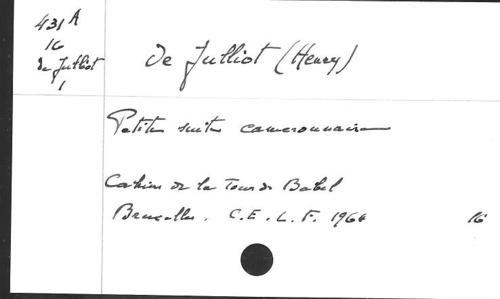 431 A
16
de Julliot
1
de Julliot (Henry)
Petite suite camerounaise
Cahiers de la Tour de Babel
Bruxelles. C.E.L.F. 1966
16